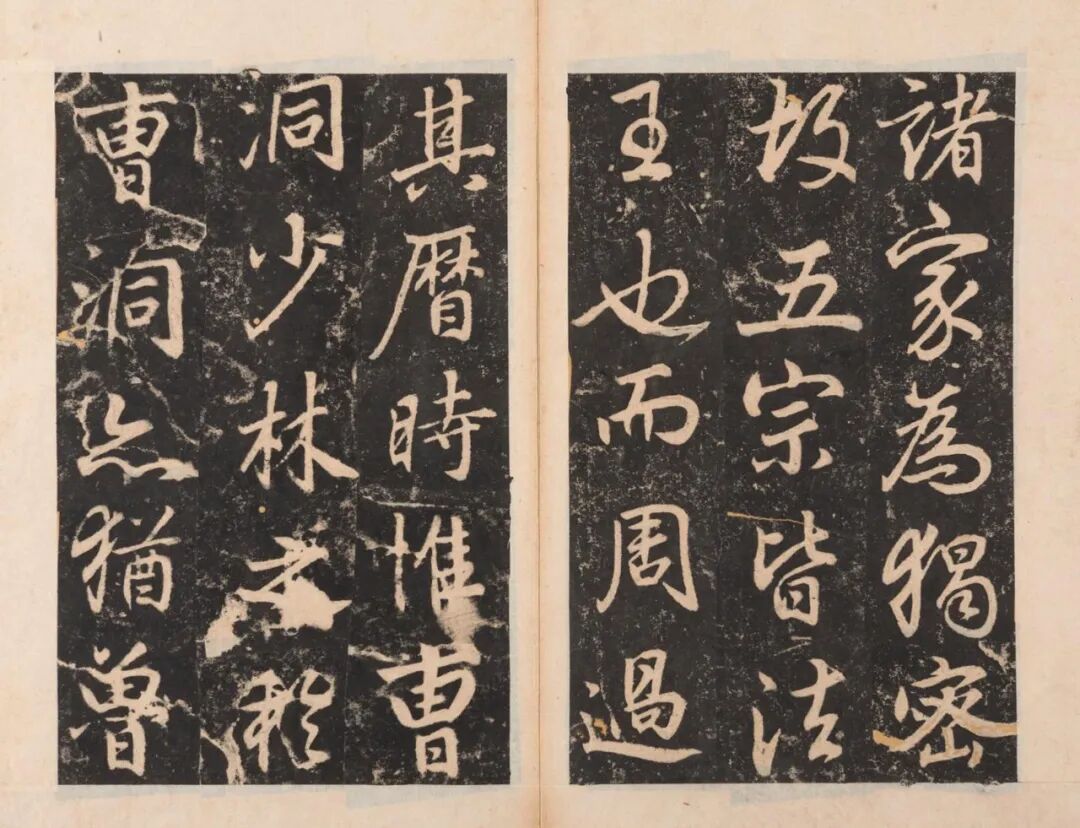 諸家為獨密
故五宗皆法
王也而周過
其曆時惟曹
洞少林之於
曹洞亦猶曾